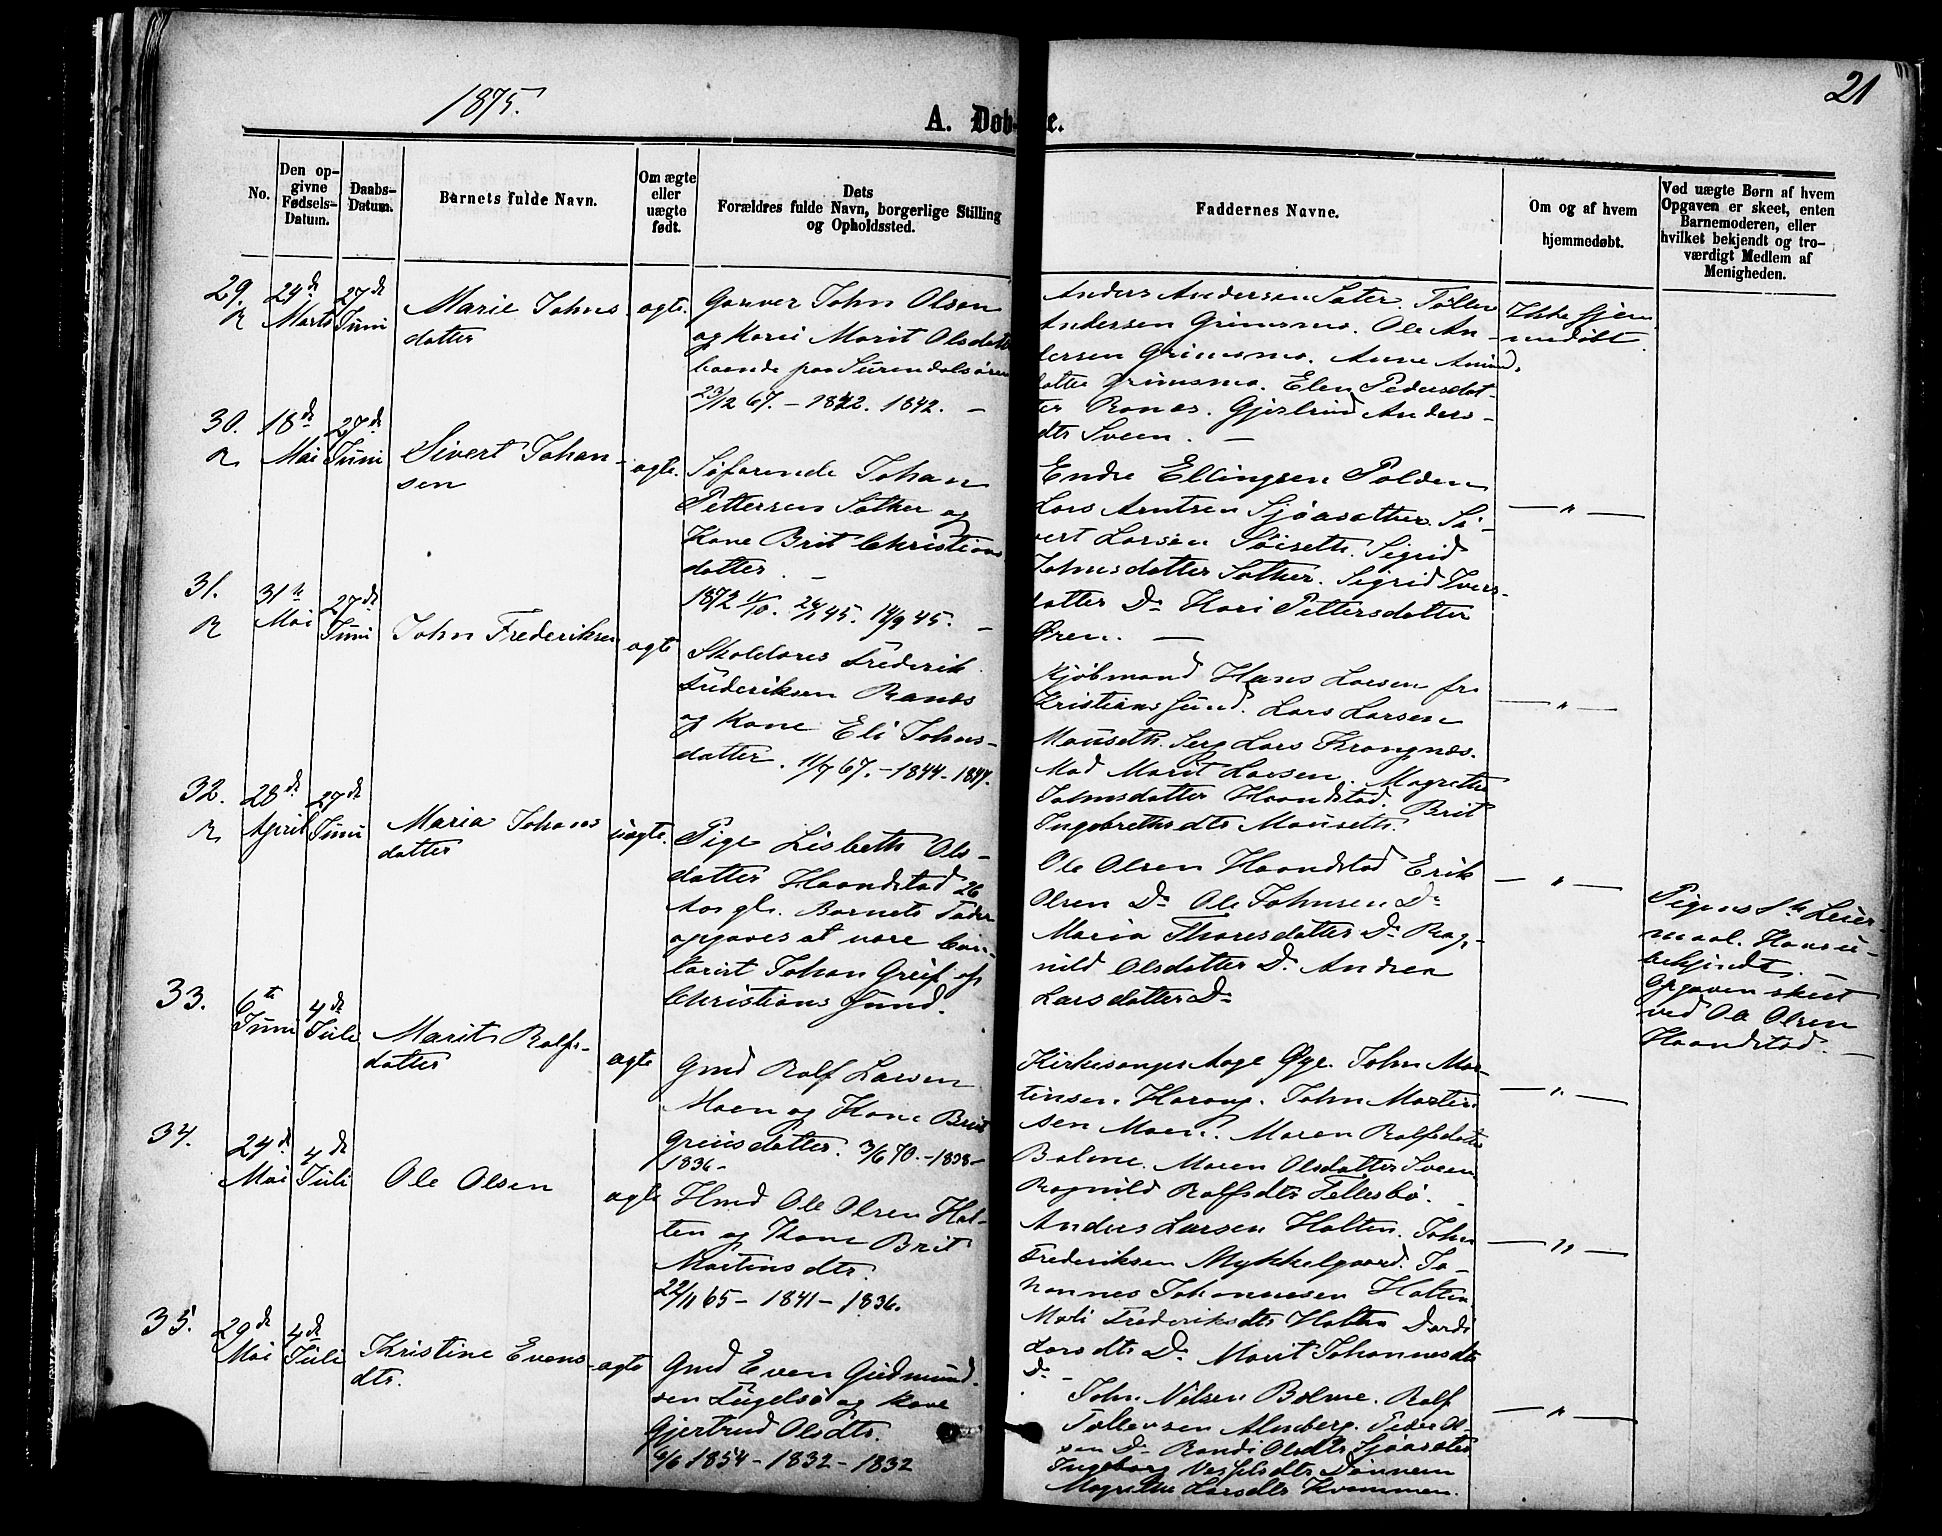 1875.
21
A. Døb  e.
No.
Den op-
givne
Fødsels-
Datum.
Daabs-
Datum.
Barnets fulde Navn.
Om ægte
eller
uægte
født.
Dets
Forældres fulde Navn, borgerlige Stilling
og Opholdssted.
Faddernes Navne.
Om og af hvem
hjemmedøbt.
Ved uægte Børn af hvem
Opgaven er skeet, enten
Barnemoderen, eller
hvilket bekjendt og tro-
værdigt Medlem af
Menigheden.
29.
R
24de
Marts
27de
Juni
Marie Johns
datter
ægte
Garver John Olsen
og Kone Marit Olsdatt
boende paa Surendalsøren
23/12 67. – 1842. 1842. –
Anders Andersen Sæter. Tollev
Andersen Grimsmo. Ole An-
dersen Grimsmo. Anne Amund
datter Grimsmo. Elen Pedersdat-
ter Ranes. Gjertrud Anders-
dtr Sveen. –
Ikke hjem-
medøbt.
30.
R
18de
Mai
27de
Juni
Sivert Johan-
sen
ægte
Søfarende Johan
Pettersen Sæther og
Kone Brit Christians
datter. –
1872 11/10. 24/1 45. 14/9 45. –
Endre Ellingsen Polden
Lars Arntsen Sjøasæther. Si-
vert Larsen Søiseth. Sigrid
Johnsdatter Sæther. Sigrid Ivers-
datter Do Kari Pettersdatter
Øren. –
– " –
31.
R
31te
Mai
27de
Juni
John Frederiksen
ægte
Skolelærer Frederik
Frederiksen Ranæs
og Kone Eli Johns-
datter. 11/7 67. – 1844 – 1847.
Kjøbmand Hans Larsen fr.
Kristianssund. Lars Larsen
Mauseth. Serg Lars Krangnæs.
Mad Marit Larsen. Magrethe
Johnsdatter Haandstad. Brit
Ingebrethsdtr Mauseth.
– " –
32.
R
28de
April
27de
Juni
Maria Johans
datter
uægte
Pige Lisbeth Ols-
datter Haandstad 26
Aar gl. Barnets Fader
opgaves at være Con-
torist Johan Greif af
Christianssund.
Ole Olsen Haandstad Erik
Olsen Do Ole Johnsen Do
Maria Thoresdatter Do Rag-
nild Olsdatter Do Andrea
Larsdatter Do
– " –
Pigens 1te Leier
maal. Hans u-
bekjendt. –
Opgaven skeet
ved Ole Olsen
Haandstad. –
33.
6te
Juni
4de
Juli
Marit Rolfs-
datter
ægte
Gmd Rolf Larsen
Moen og Kone Brit
Greiisdatter. 3/6 70. – 1838 –
1836 –
Kirkesanger Aage Øye. John Mar-
tinsen Harang. John Martin
sen Moen. Maren Rolfsdatter
Bolme. Maren Olsdatter Sveen
Ragnild Rolfsdtr Tellesbø. –
– " –
34.
24de
Mai
4de
Juli
Ole Olsen
ægte
Hmd Ole Olsen Hol-
ten og Kone Brit
Martinsdtr.
22/11 65 – 1841 – 1836.
Anders Larsen Holten. John
Frederiksen Mykkelgaard. Jo-
hannes Johannesen Holten
Mali Frederiksdtr Holten Dordi
Larsdtr Do Marit Johannesdtr
Do –
– " –
35.
29de
Mai
4de
Juli
Kristine Evens-
dtr.
ægte
Gmd Even Gudmund-
sen Fugelsø og Kone
Gjertrud Olsdtr.
6/6 1854 – 1832 – 1832
John Nilsen Bolme. Rolf
Tollevsen Almberg. Peder Ol-
sen Do Randi Olsdtr Sjøasæter
Ingeborg Dønnem
Magrethe Larsdtr Kvammen.
– " –